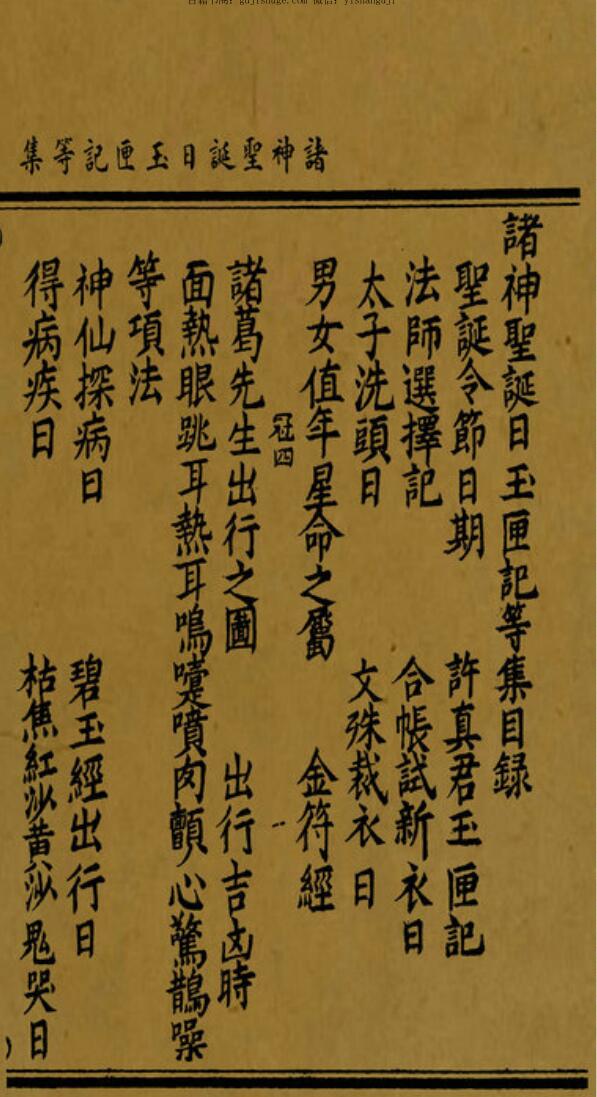 諸神聖誕日玉匣記等集
諸神聖誕日玉匣記等集目録
聖誕令節日期 許真君玉匣記
法師選擇記 合帳試新衣日
太子洗頭日 文殊裁衣日
男女值年星命之屬 金符經
冠四
諸葛先生出行之圖 出行吉凶時
面熱眼跳耳熱耳鳴嚏噴肉顫心驚鵲噪
等項法
神仙探病日 碧玉經出行日
得病疾日 枯焦紅沙黄沙鬼哭日